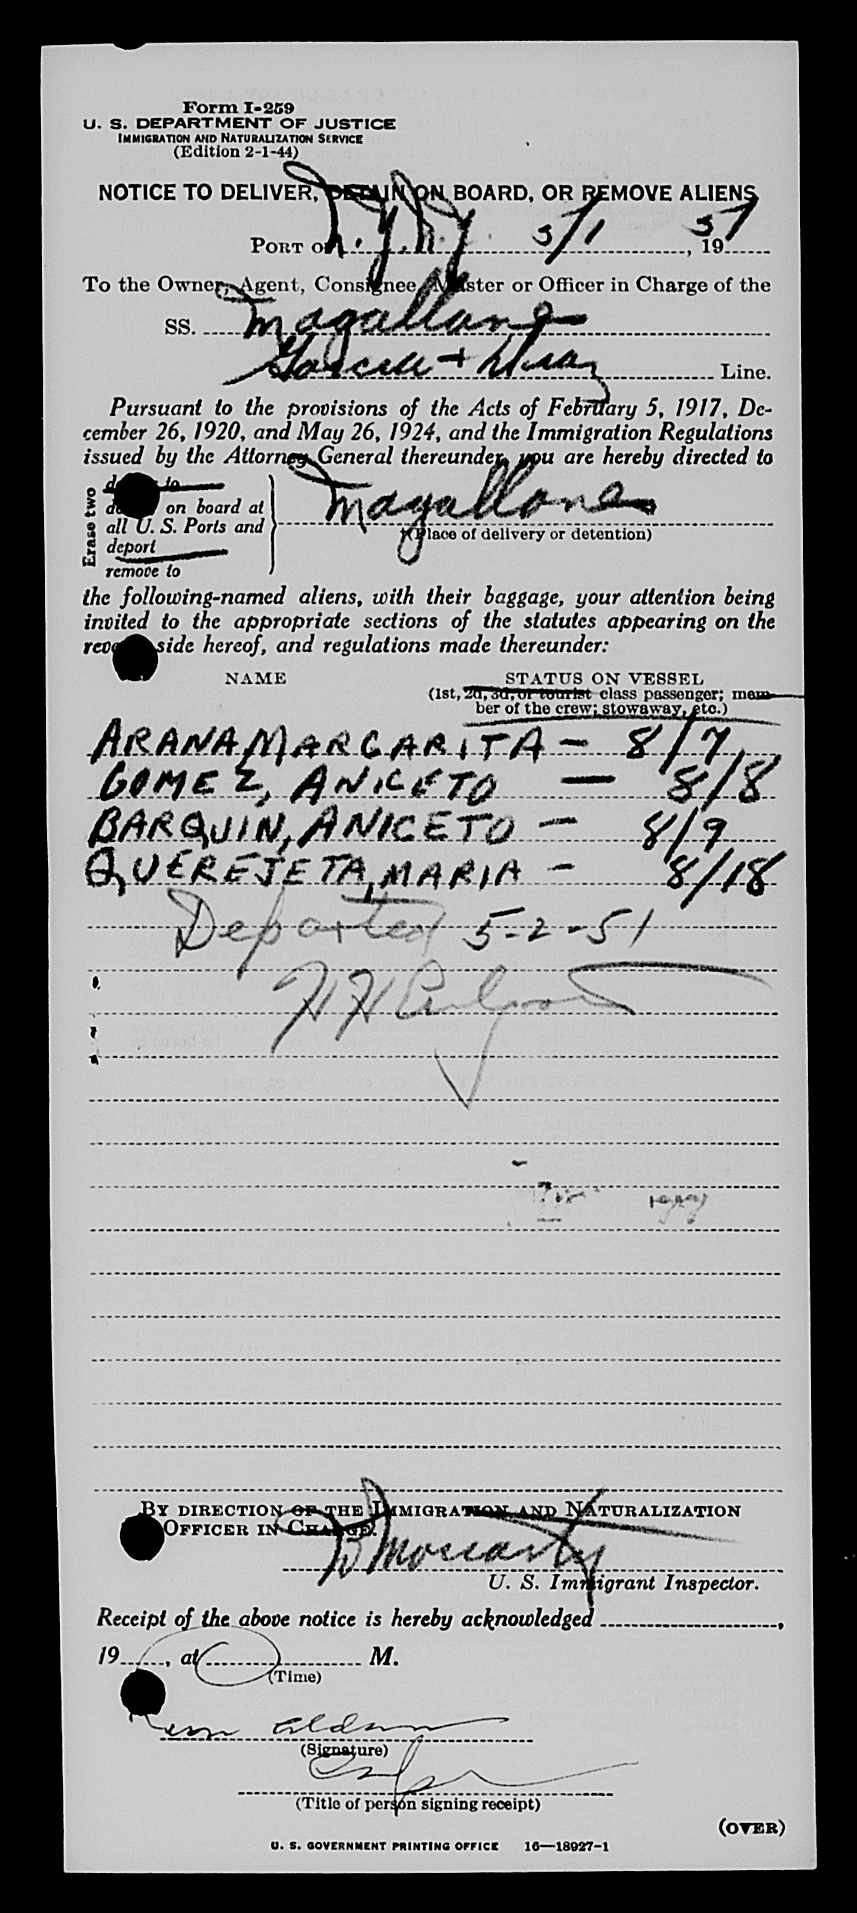 Form I-259
U. S. DEPARTMENT OF JUSTICE
IMMIGRATION AND NATURALIZATION SERVICE
(Edition 2-1-44)
NOTICE TO DELIVER, DETAIN ON BOARD, OR REMOVE ALIENS
PORT OF N.Y.N.Y. 5/1, 1951
To the Owner, Agent, Consignee, Master or Officer in Charge of the
SS. Magallanes
Garcia + Diaz Line.
Pursuant to the provisions of the Acts of February 5, 1917, De-
cember 26, 1920, and May 26, 1924, and the Immigration Regulations
issued by the Attorney General thereunder, you are hereby directed to
Erase two
on board at
all U. S. Ports and
deport
remove to
Magallanes
(Place of delivery or detention)
the following-named aliens, with their baggage, your attention being
invited to the appropriate sections of the statutes appearing on the
reverse side hereof, and regulations made thereunder:
NAME STATUS ON VESSEL
(1st, 2d, 3d, or tourist class passenger; mem-
ber of the crew; stowaway, etc.)
ARANA MARGARITA — 8/7
GOMEZ, ANICETO — 8/8
BARQUIN, ANICETO — 8/9
QUEREJETA, MARIA — 8/18
Departed 5-2-51
BY DIRECTION OF THE IMMIGRATION AND NATURALIZATION
OFFICER IN CHARGE.
Moriarty
U. S. Immigrant Inspector.
Receipt of the above notice is hereby acknowledged ,
19 , at M.
(Time)
(Signature)
(Title of person signing receipt)
(OVER)
U. S. GOVERNMENT PRINTING OFFICE 16—18927-1